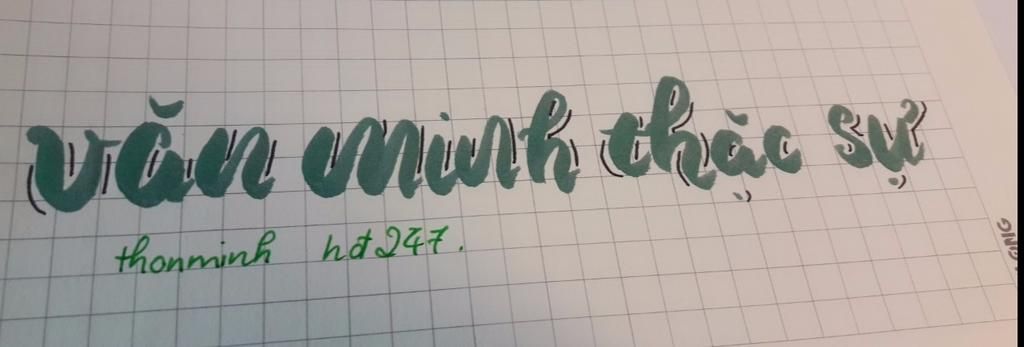 văn minh thặc sự
thonminh hđ247.
ONG